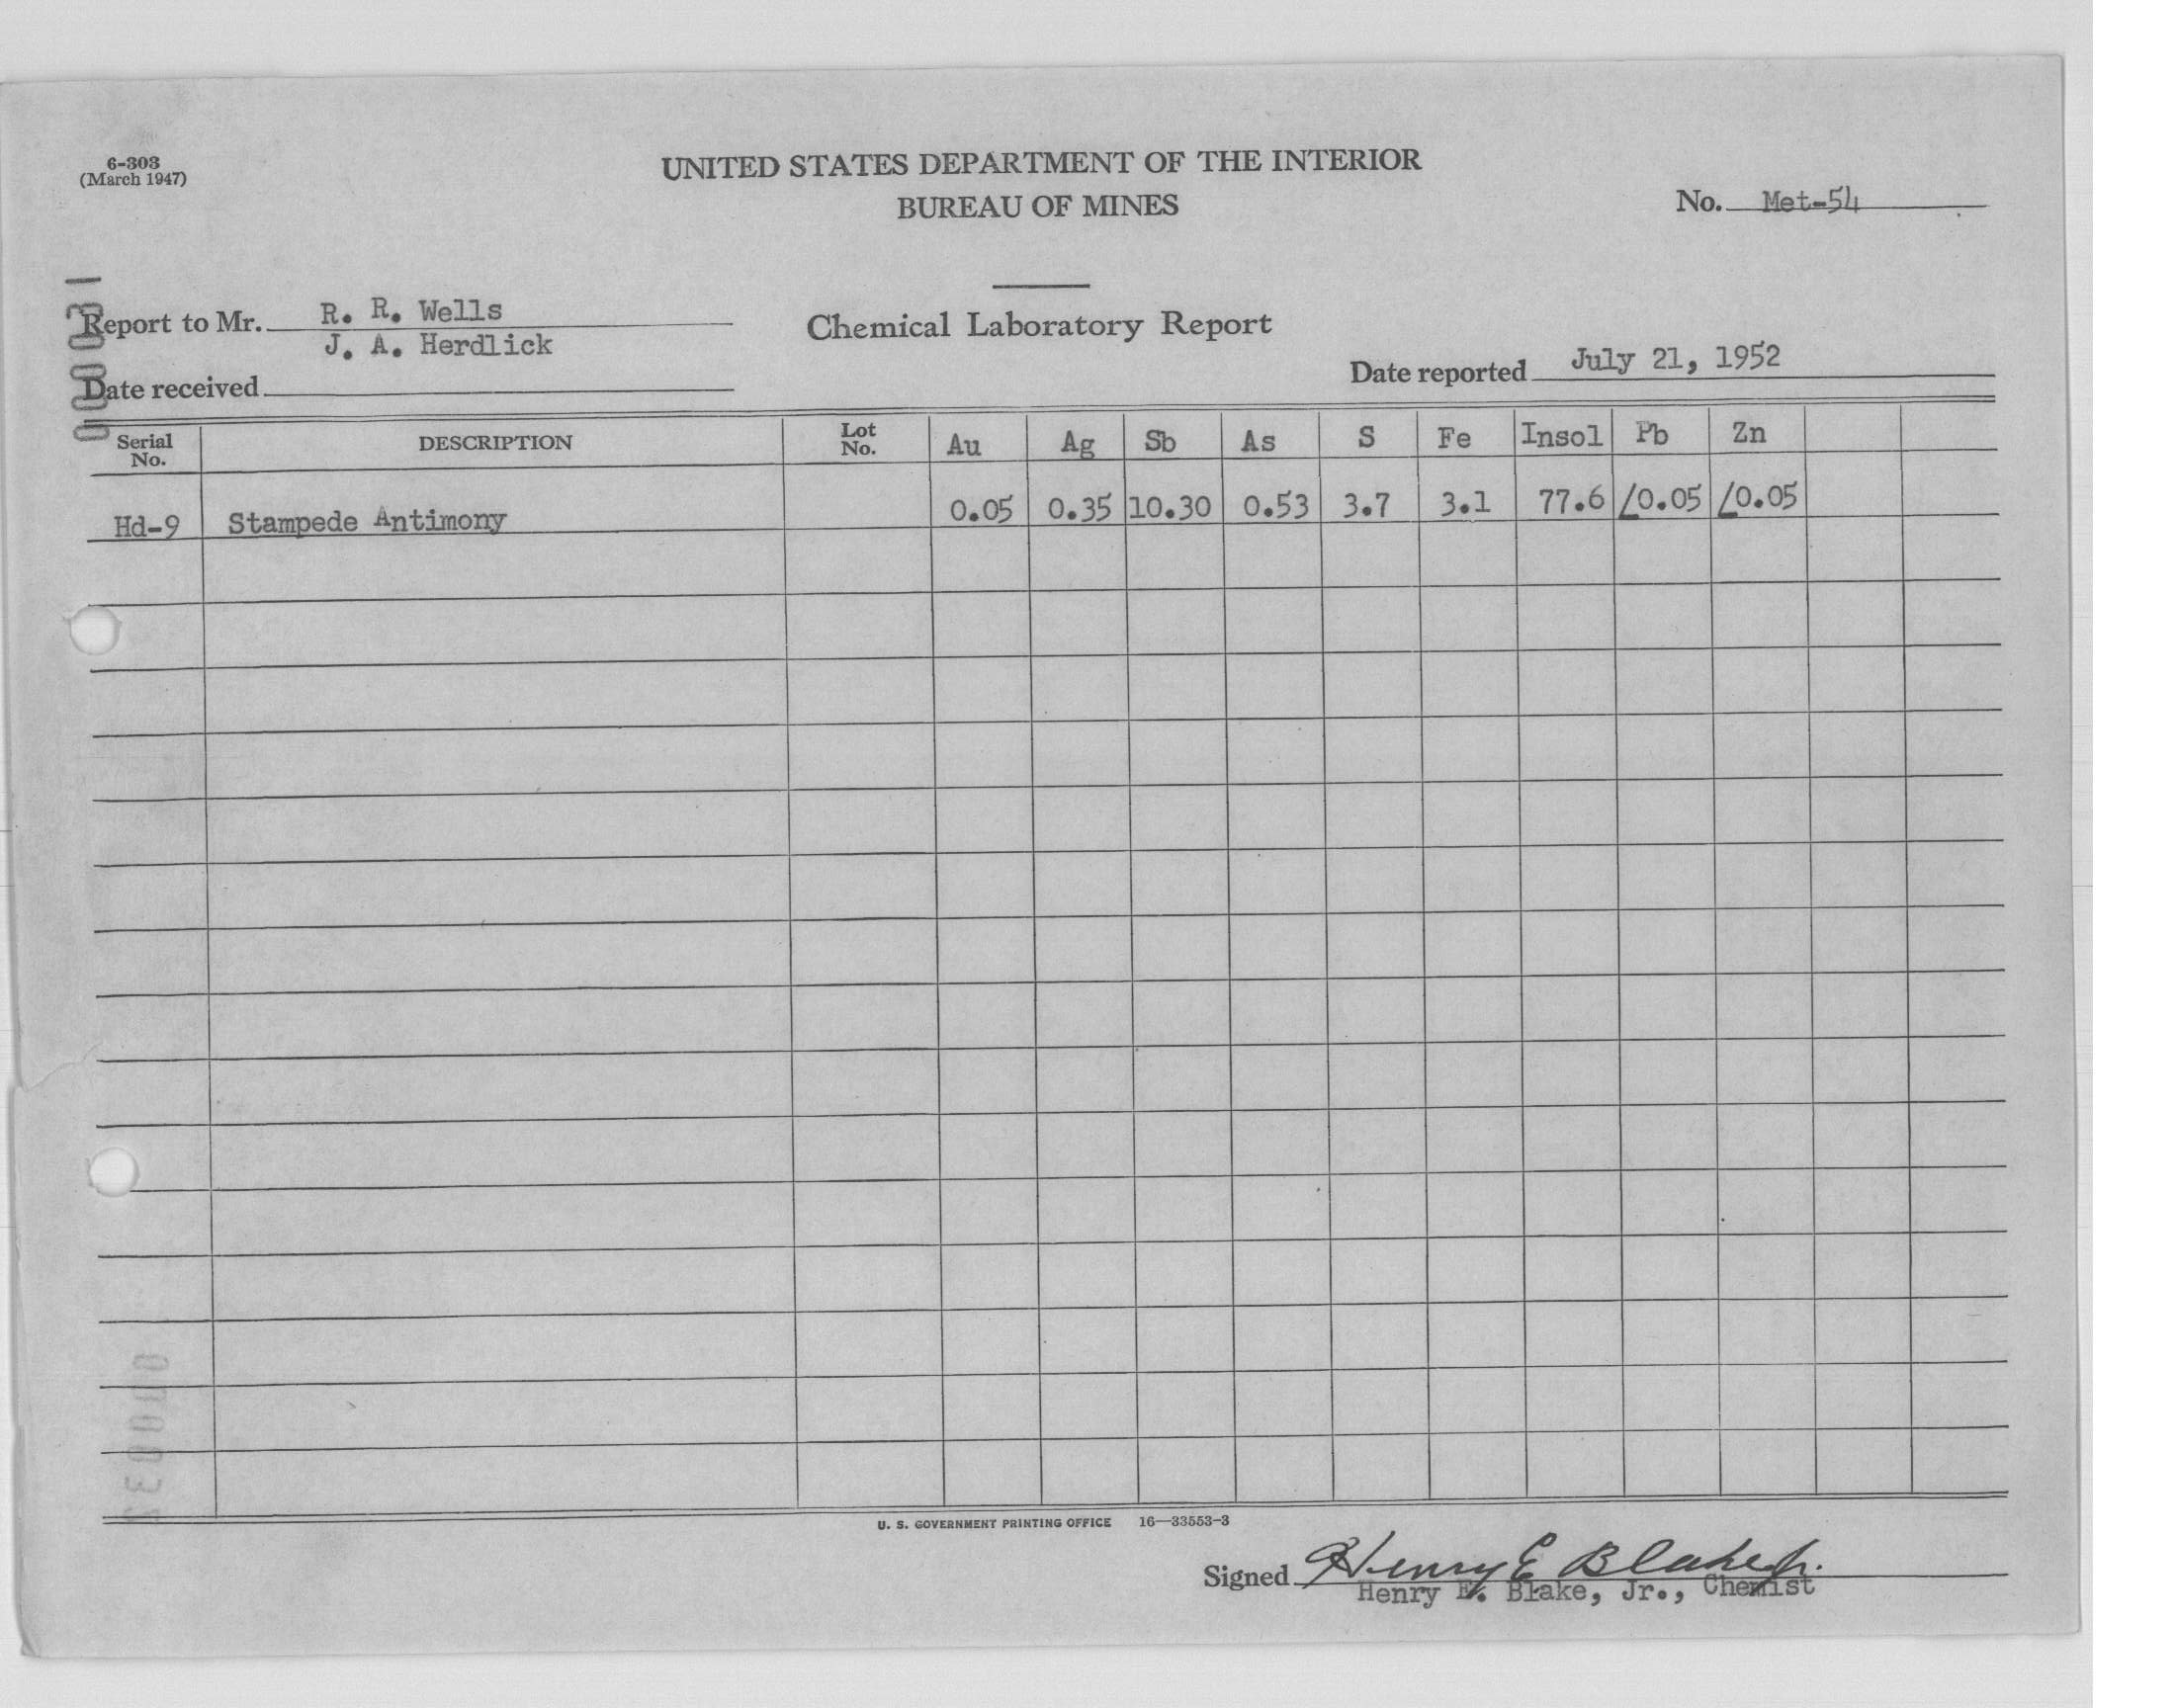 6-303
(March 1947)
UNITED STATES DEPARTMENT OF THE INTERIOR
BUREAU OF MINES
No. Met-54
000031
Report to Mr. R. R. Wells
J. A. Herdlick
Chemical Laboratory Report
Date reported July 21, 1952
Date received
Serial No. DESCRIPTION Lot No. Au Ag Sb As S Fe Insol Pb Zn
Hd-9 Stampede Antimony 0.05 0.35 10.30 0.53 3.7 3.1 77.6 /0.05 /0.05
U. S. GOVERNMENT PRINTING OFFICE 16—33553-3
Signed Henry E Blake Jr.
Henry E. Blake, Jr., Chemist